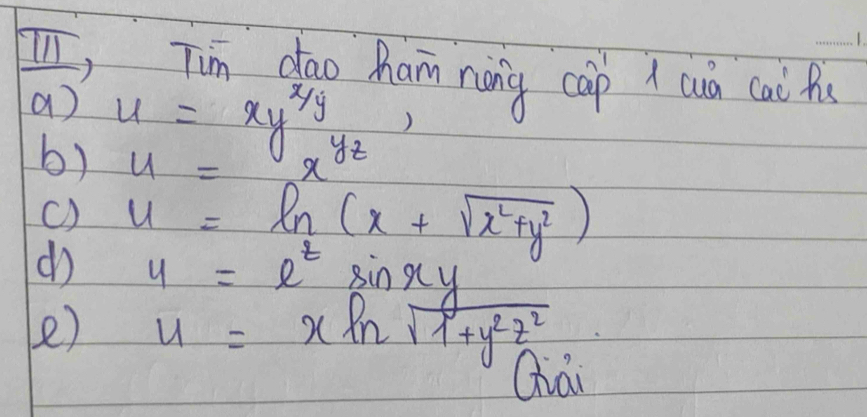 III, Tìm đạo hàm riêng cấp 1 của các hs
a) u = xy^{x/y},
b) u = x^{yz}
c) u = ln (x + √(x²+y²))
d) u = e^z sin xy
e) u = x ln √(1+y²z²).
Giải